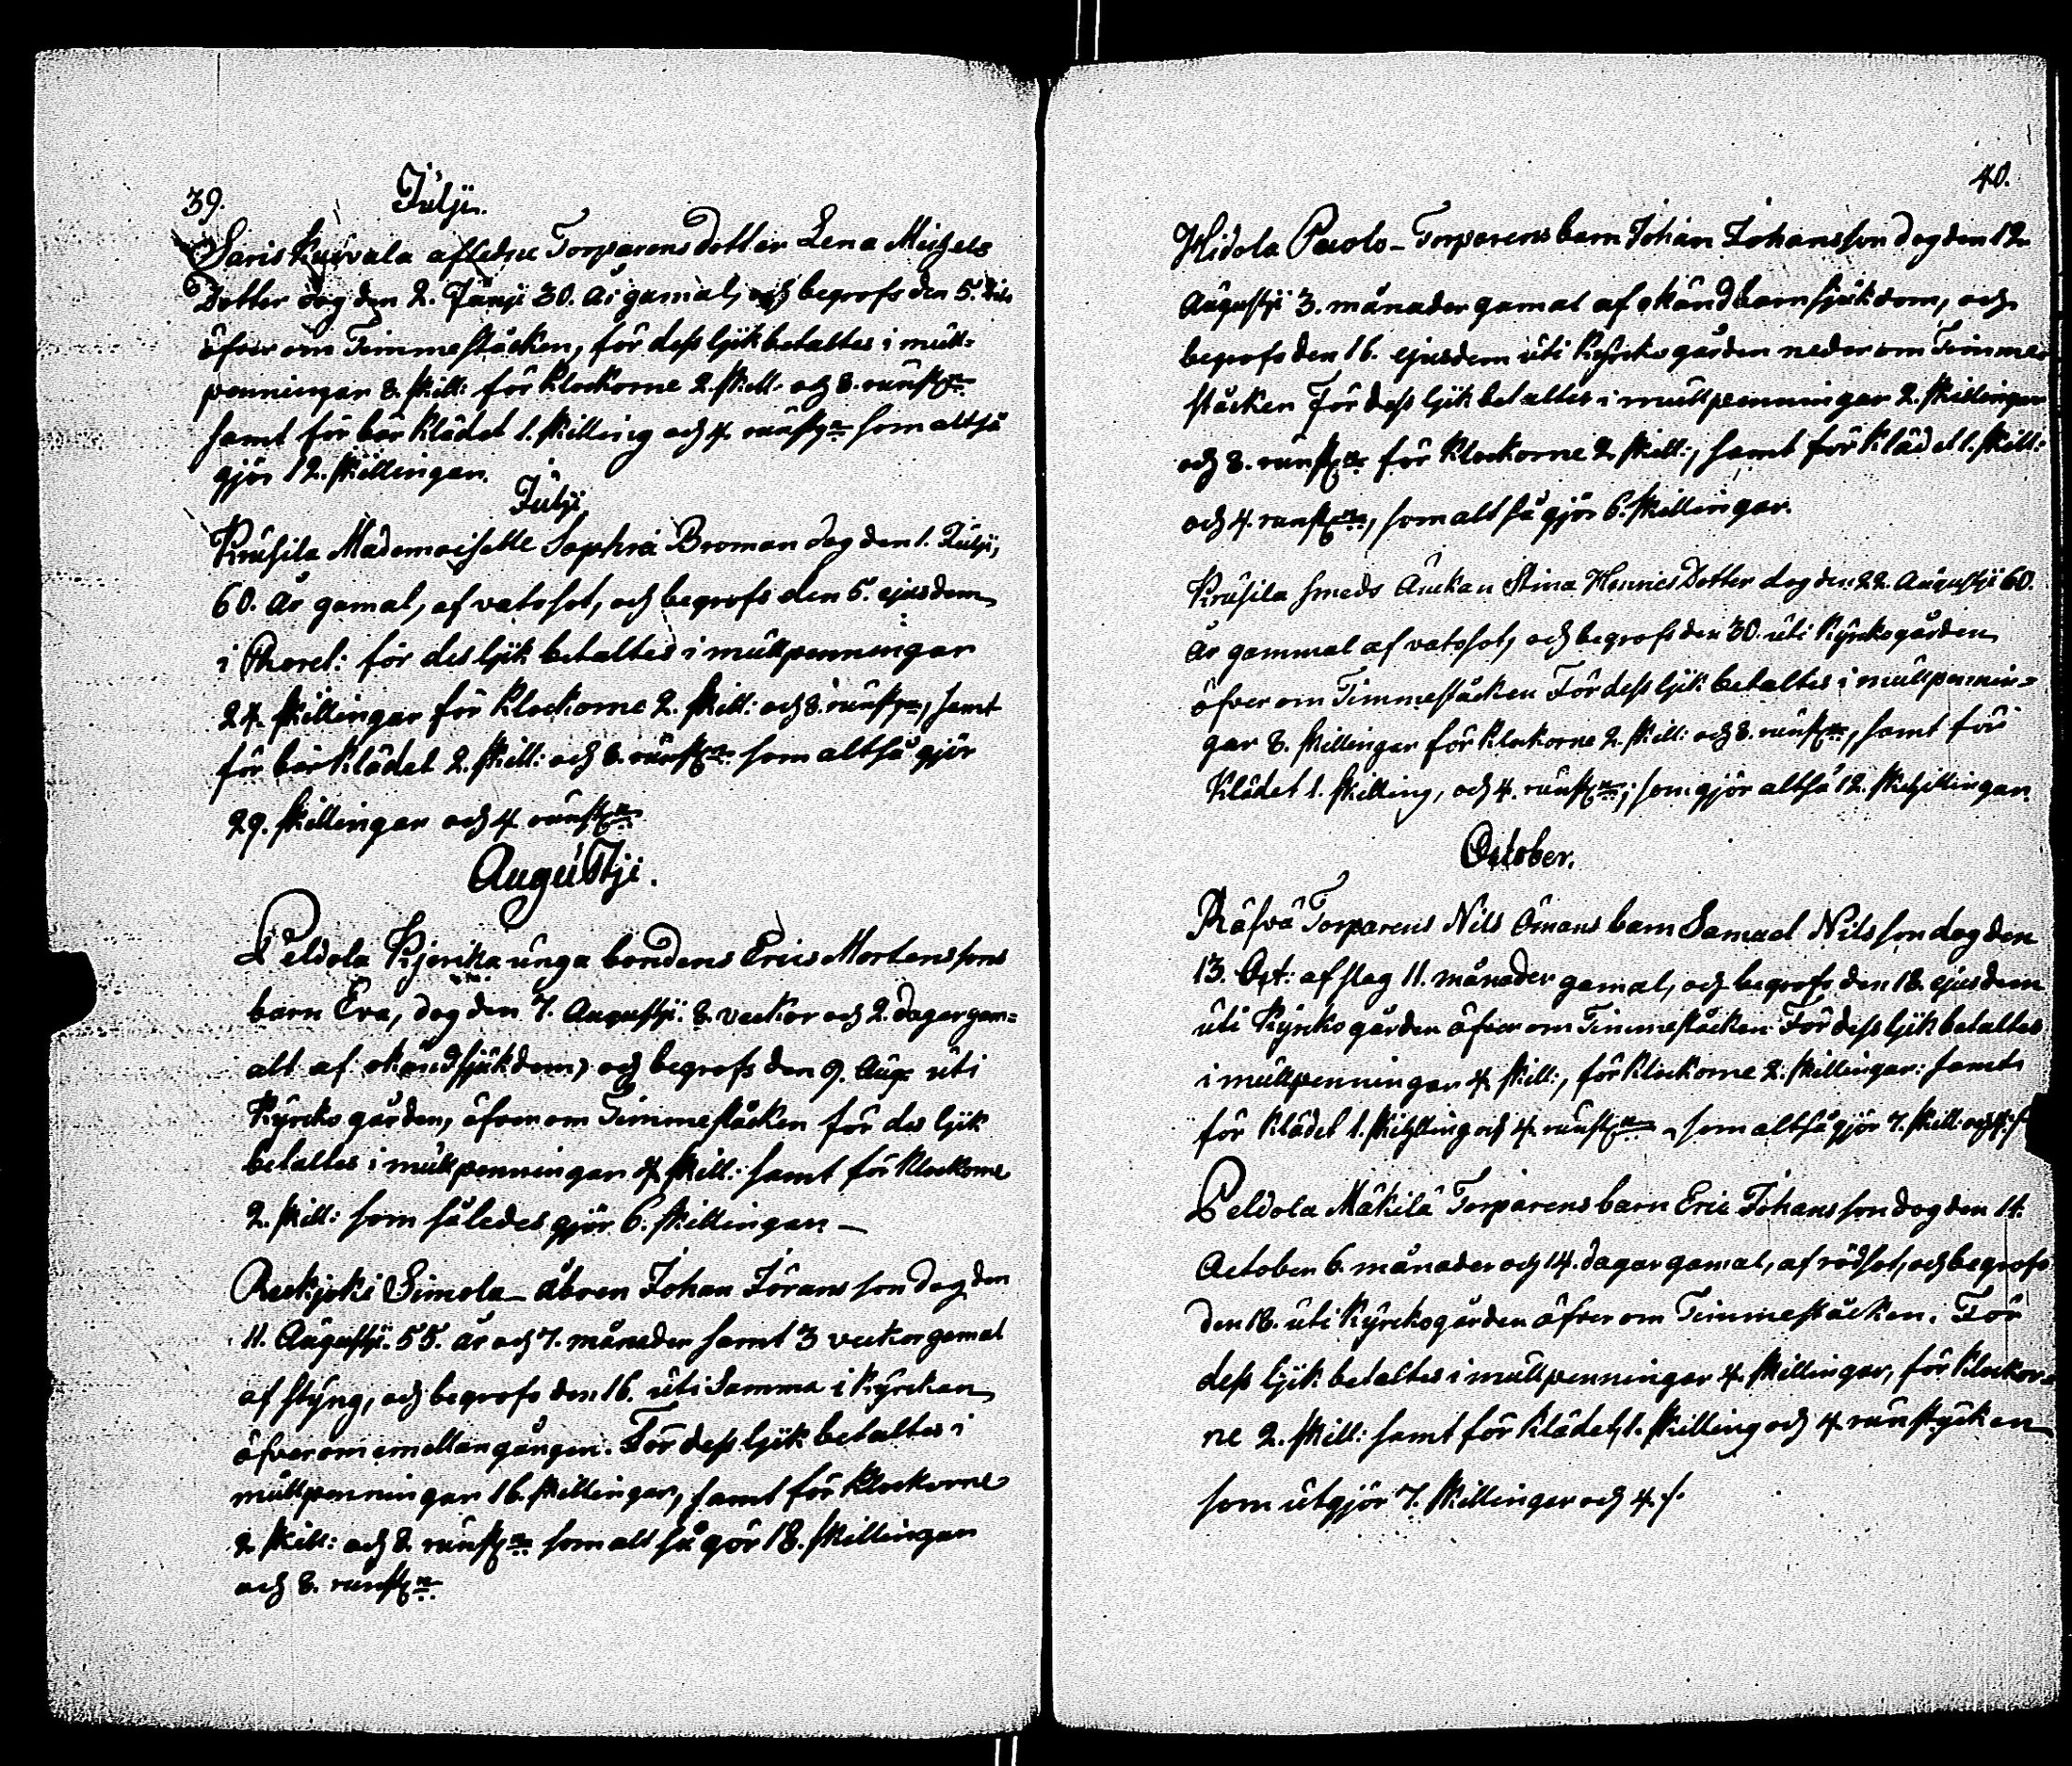 39.
Julji.
Saris Kuivala afledne Torparens dotter Lena Michels
Dotter dog den 2. Junji 30. År gamal, och begrofs den 5. dito
öfver om Timmestäcken, för dess ljik betaltes i mull-
penningar 8. skill: för klockorne 2. skill: och 8. runstn
samt för bår klädet 1. skilling och 4. runstn som altså
gjör 12. skillingar.
Julji
Krusila Mademoiselle Sophia Broman dog den 1. Julji,
60. År gamal, af vatosot, och begrofs den 5. ejusdem
i Choret: för des ljik betaltes i mullpenningar
24. skillingar för klockorne 2. skill: och 8. runstn, samt
för bårklädet 2. skill: och 8. runstn som altså gjör
29. skillingar och 4. runstn
Augustji.
Peldola Kjerika unga bondens Erics Mortenssons
barn Eva, dog den 7. Augustji. 8. veckor och 2. dagar gam-
alt af okänd sjukdom, och begrofs den 9. Aug: uti
Kyrcko gården, öfver om Timmestäcken för des ljik
betaltes i mullpenningar 4. skill: samt för klockorne
2. skill: som således gjör 6. skillingar —
Reckjoki Simola åboen Johan Jöransson dog den
11. Augustji. 55. år och 7. månader samt 3 veckor gamal
af styng, och begrofs den 16. uti samma i kyrckan
öfver om emellangången. För dess ljik betaltes i
mullpenningar 16. skillingar, samt för klockorne
2 skill: och 8. runstn som alt så gör 18. skillingar
och 8. runstn
40.
Hidola Pavolo- Torparens barn Johan Johansson dog den 12.
Augustji 3. månader gamal af okänd barnsjukdom, och
begrofs den 16. ejusdem uti Kyrckogården neder om Timme-
stäcken För dess ljik betaltes i mullpenningar 2. skillingar
och 8. runstn för klockorne 2 skill:, samt för klädet 1. skill:
och 4. runstn, som alt så gjör 6. skillingar.
Krusila smeds Änckan Stina Henrics Dotter dog den 22. Augustji 60.
År gammal af vatosot, och begrofs den 30. uti Kyrckogården
öfver om Timmestäcken För dess ljik betaltes i mullpennin-
gar 8. skillingar för klockorne 2. skill: och 8. runstn, samt för
Klädet 1. skilling, och 4. runstn; som gjör altså 12. skillingar.
October.
Räfvä Torparens Nils Ömans barn Samuel Nilsson dog den
13. Oct: af slag 11. månader gamal, och begrofs den 18. ejusdem
uti Kyrcko gården öfver om Timmestäcken För dess ljik betaltes
i mullpenningar 4 skill:, för klockorne 2. skillingar: samt
för klädet 1. skilling och 4. runstn som altså gjör 7. skill: och 4:
Peldola Mäkilä Torparens barn Eric Johansson dog den 14.
October 6. månader och 14. dagar gamal, af rödsot, och begrofs
den 18. uti Kyrckogården öfver om Timmestäcken. För
dess ljik betaltes i mullpenningar 4. skillingar, för klockor-
ne 2. skill: samt för klädet 1. skilling och 4. runstycken
som utgjör 7. skillingar och 4. s.